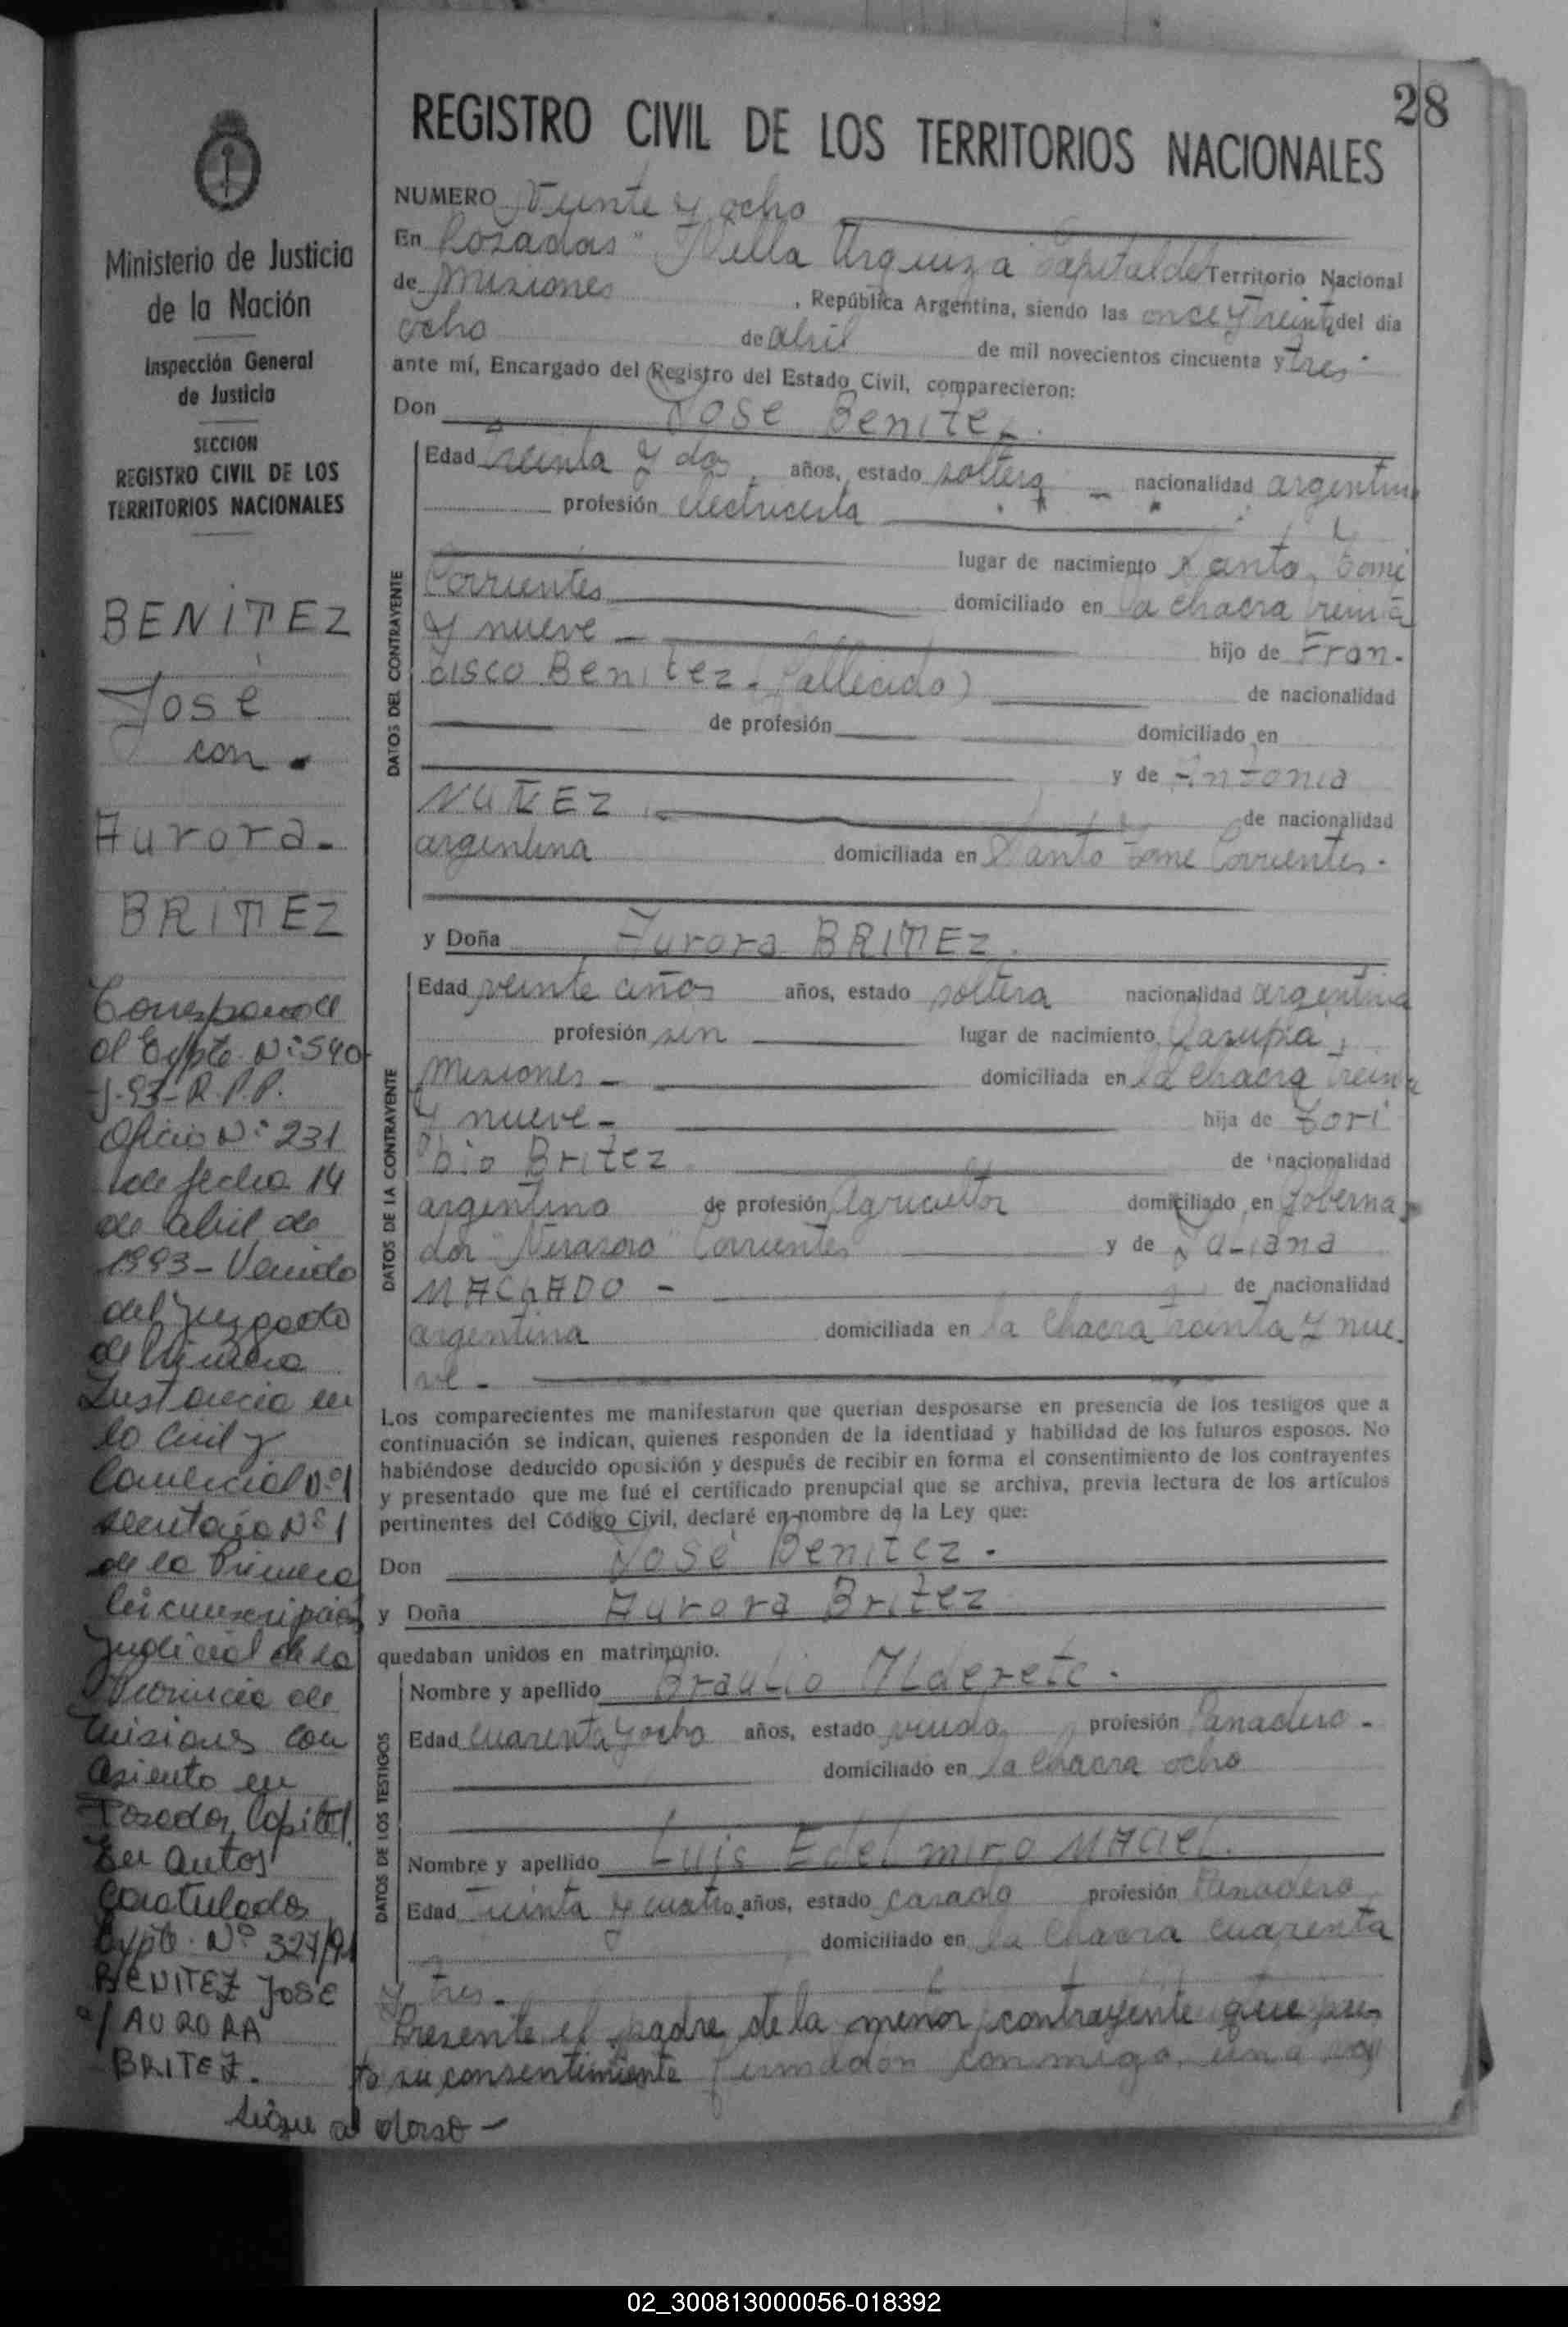 28
REGISTRO CIVIL DE LOS TERRITORIOS NACIONALES
Ministerio de Justicia
de la Nación
Inspección General
de Justicia
SECCION
REGISTRO CIVIL DE LOS
TERRITORIOS NACIONALES
BENITEZ
José
con
Aurora.
BRITEZ
Corresponde
al Expte. Nº 540
J-93-R.P.P.
Oficio Nº 231
de fecha 14
de abril de
1993 - Venido
del Juzgado
de Primera
Instancia en
lo Civil y
Comercial Nº 1
secretaria Nº 1
de la Primera
Circunscripción
Judicial de la
Provincia de
Misiones con
asiento en
Posadas, Capital.
En autos
caratulados
Expte. Nº 327/91
BENITEZ JOSE
c/ AURORA
BRITEZ.
Sigue al dorso -
NUMERO Veinte y ocho
En Posadas "Villa Urquiza" Capital del Territorio Nacional
de Misiones, República Argentina, siendo las once y treinta del día
ocho de abril de mil novecientos cincuenta y tres
ante mí, Encargado del Registro del Estado Civil, comparecieron:
Don José Benitez.
DATOS DEL CONTRAYENTE
Edad treinta y dos años, estado soltero - nacionalidad argentino
profesión electricista
lugar de nacimiento Santo Tomé
Corrientes domiciliado en la chacra treinta
y nueve - hijo de Fran-
cisco Benitez. (fallecido) de nacionalidad
de profesión domiciliado en
y de Antonia
NUÑEZ de nacionalidad
argentina domiciliada en Santo Tomé Corrientes.
y Doña Aurora BRITEZ.
DATOS DE LA CONTRAYENTE
Edad veinte años años, estado soltera nacionalidad argentina
profesión sin lugar de nacimiento Garupá,
Misiones - domiciliada en la chacra treinta
y nueve - hija de Tori
bio Britez de nacionalidad
argentino de profesión Agricultor domiciliado en Goberna
dor "Virasoro" Corrientes y de
MACHADO - de nacionalidad
argentina domiciliada en la chacra treinta y nue.
ve -
Los comparecientes me manifestaron que querían desposarse en presencia de los testigos que a
continuación se indican, quienes responden de la identidad y habilidad de los futuros esposos. No
habiéndose deducido oposición y después de recibir en forma el consentimiento de los contrayentes
y presentado que me fué el certificado prenupcial que se archiva, previa lectura de los artículos
pertinentes del Código Civil, declaré en nombre de la Ley que:
Don José Benitez.
y Doña Aurora Britez
quedaban unidos en matrimonio.
DATOS DE LOS TESTIGOS
Nombre y apellido Braulio Alderete.
Edad cuarenta y ocho años, estado viudo profesión Panadero.
domiciliado en la chacra ocho
Nombre y apellido Luis Edelmiro MACIEL.
Edad Treinta y cuatro años, estado casado profesión Panadero
domiciliado en la chacra cuarenta
y tres.
Presente el padre de la menor contrayente que pres
ta su consentimiento firmaron conmigo, una vez
02_300813000056-018392